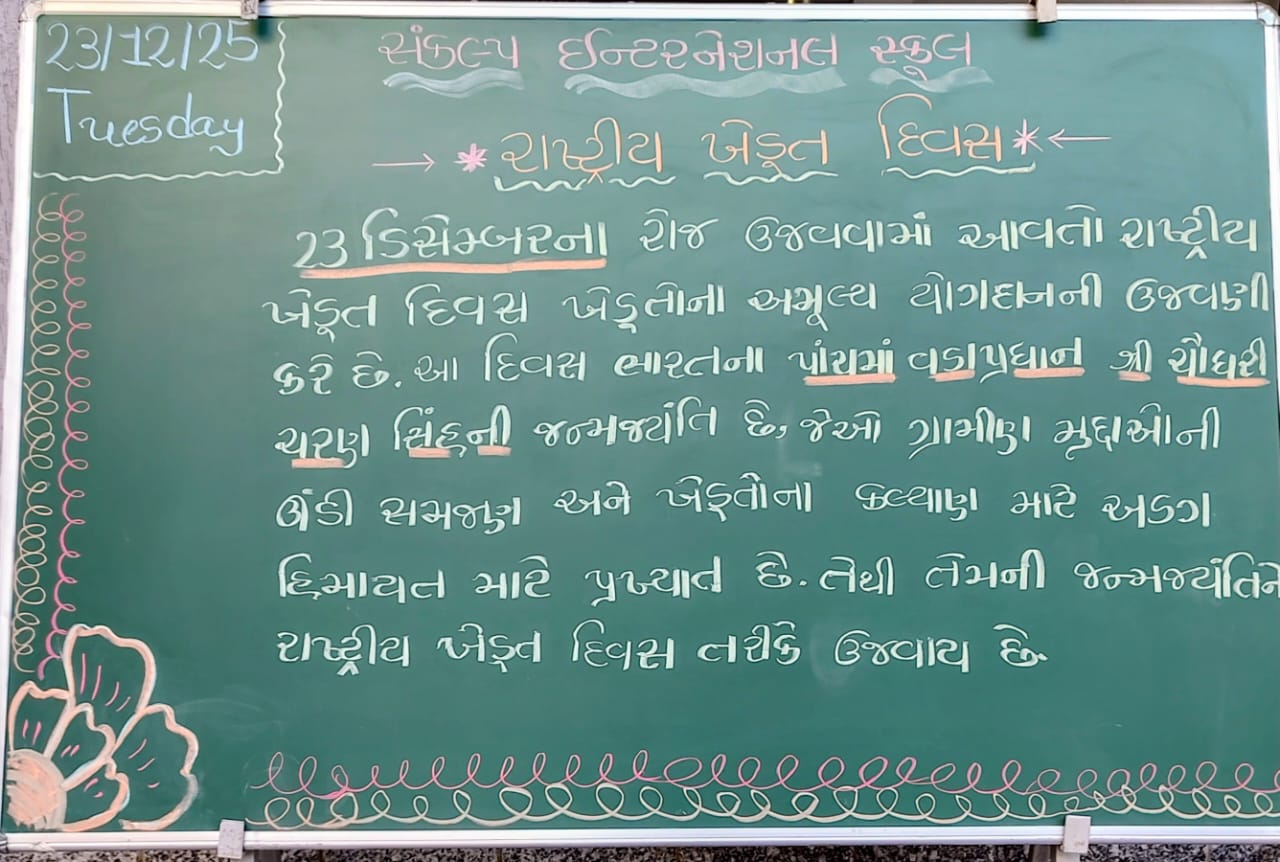 23/12/25
Tuesday
સંકલ્પ ઈન્ટરનેશનલ સ્કૂલ
→ * રાષ્ટ્રીય ખેડૂત દિવસ * ←
23 ડિસેમ્બરના રોજ ઉજવવામાં આવતો રાષ્ટ્રીય
ખેડૂત દિવસ ખેડૂતોના અમૂલ્ય યોગદાનની ઉજવણી
કરે છે. આ દિવસ ભારતના પાંચમાં વડાપ્રધાન શ્રી ચૌધરી
ચરણ સિંહની જન્મજ્યંતિ છે, જેઓ ગ્રામીણ મુદ્દાઓની
ઊંડી સમજણ અને ખેડૂતોના કલ્યાણ માટે અડગ
હિમાયત માટે પ્રખ્યાત છે. તેથી તેમની જન્મજ્યંતિને
રાષ્ટ્રીય ખેડૂત દિવસ તરીકે ઉજવાય છે.